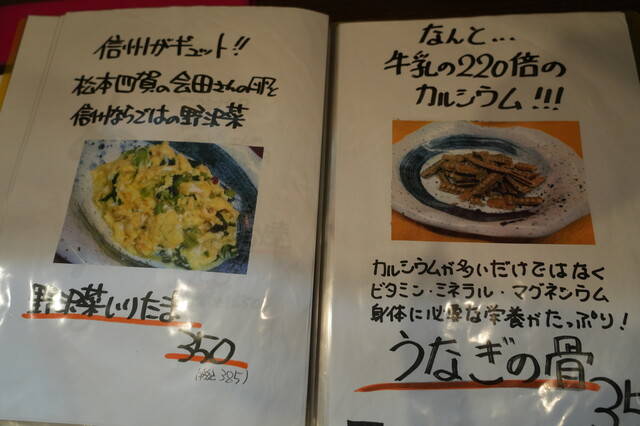 信州がギュット!!
松本四賀の会田さんの卵と
信州ならではの野沢菜
野沢菜いりたま
350
(税込385)
なんと...
牛乳の220倍の
カルシウム!!!
カルシウムが多いだけではなく
ビタミン・ミネラル・マグネシウム
身体に必要な栄養がたっぷり!
うなぎの骨
35